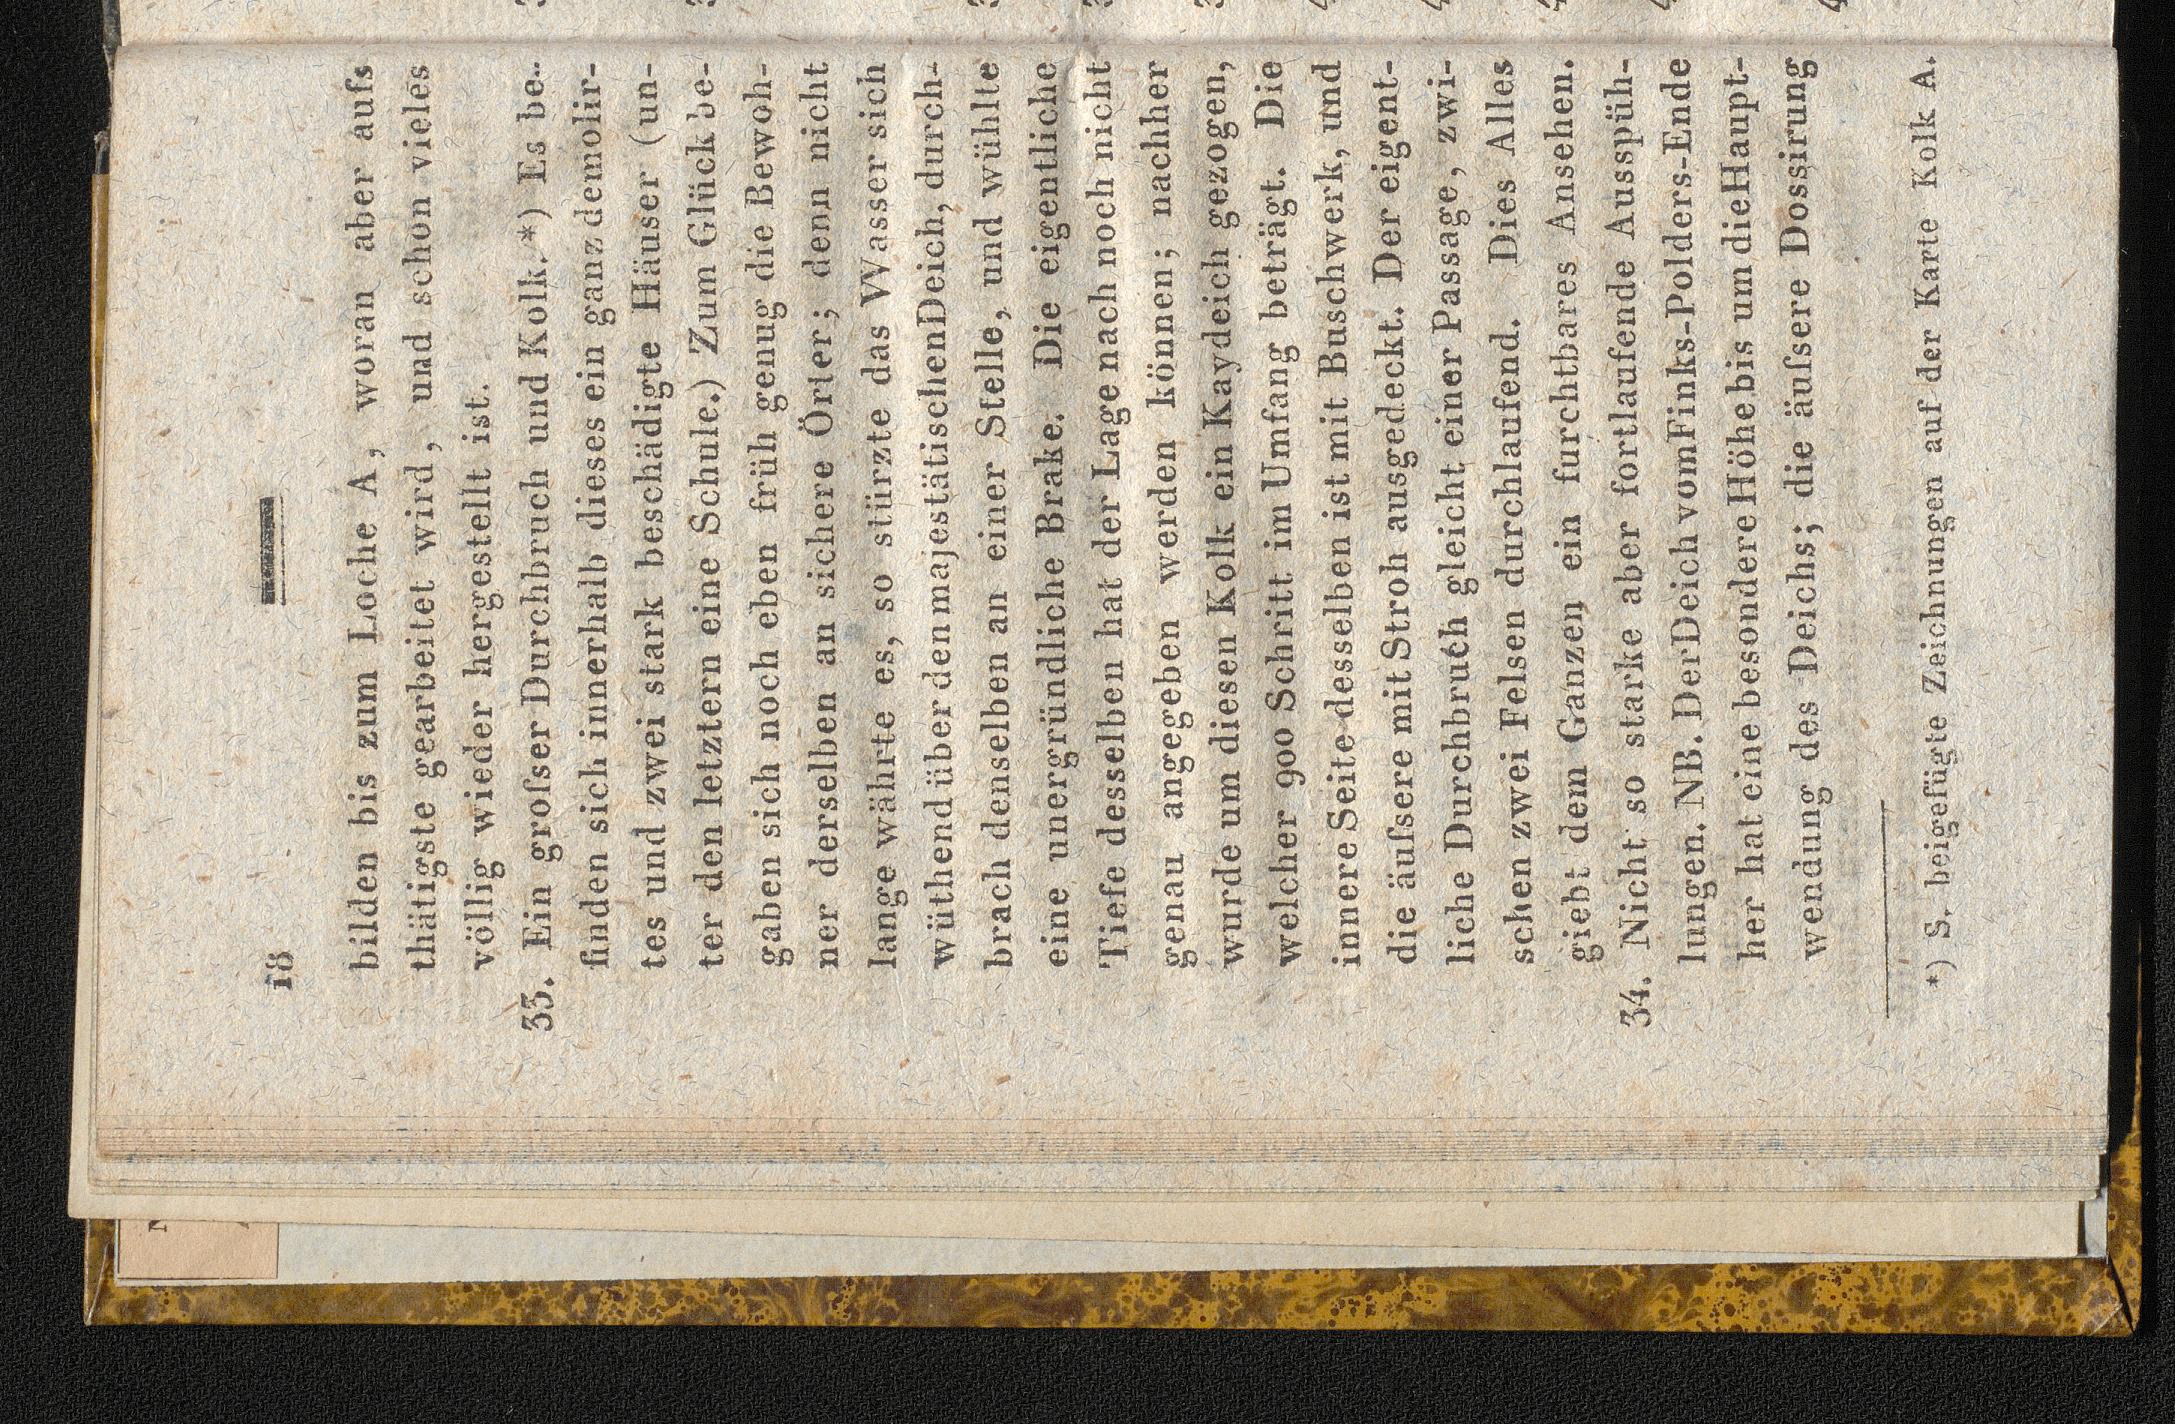 18
bilden bis zum Loche A, woran aber aufs
thätigste gearbeitet wird, und schon vieles
völlig wieder hergestellt ist.
33. Ein groſser Durchbruch und Kolk. *) Es be-
finden sich innerhalb dieses ein ganz demolir-
tes und zwei stark beschädigte Häuser (un-
ter den letztern eine Schule.) Zum Glück be-
gaben sich noch eben früh genug die Bewoh-
ner derselben an sichere Örter; denn nicht
lange währte es, so stürzte das Wasser sich
wüthend über den majestätischen Deich, durch-
brach denselben an einer Stelle, und wühlte
eine unergründliche Brake. Die eigentliche
Tiefe desselben hat der Lage nach noch nicht
genau angegeben werden können; nachher
wurde um diesen Kolk ein Kaydeich gezogen,
welcher 900 Schritt im Umfang beträgt. Die
innere Seite desselben ist mit Buschwerk, und
die äuſsere mit Stroh ausgedeckt. Der eigent-
liche Durchbruch gleicht einer Passage, zwi-
schen zwei Felsen durchlaufend. Dies Alles
giebt dem Ganzen ein furchtbares Ansehen.
34. Nicht so starke aber fortlaufende Ausspüh-
lungen. NB. Der Deich vom Finks-Polders-Ende
her hat eine besondere Höhe bis um die Haupt-
wendung des Deichs; die äuſsere Dossirung
*) S. beigefügte Zeichnungen auf der Karte Kolk A.